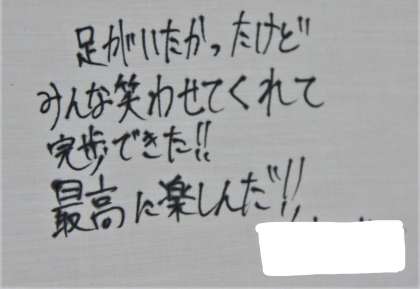 足がいたかったけど
みんな笑わせてくれて
完歩できた!!
最高に楽しんだ!!